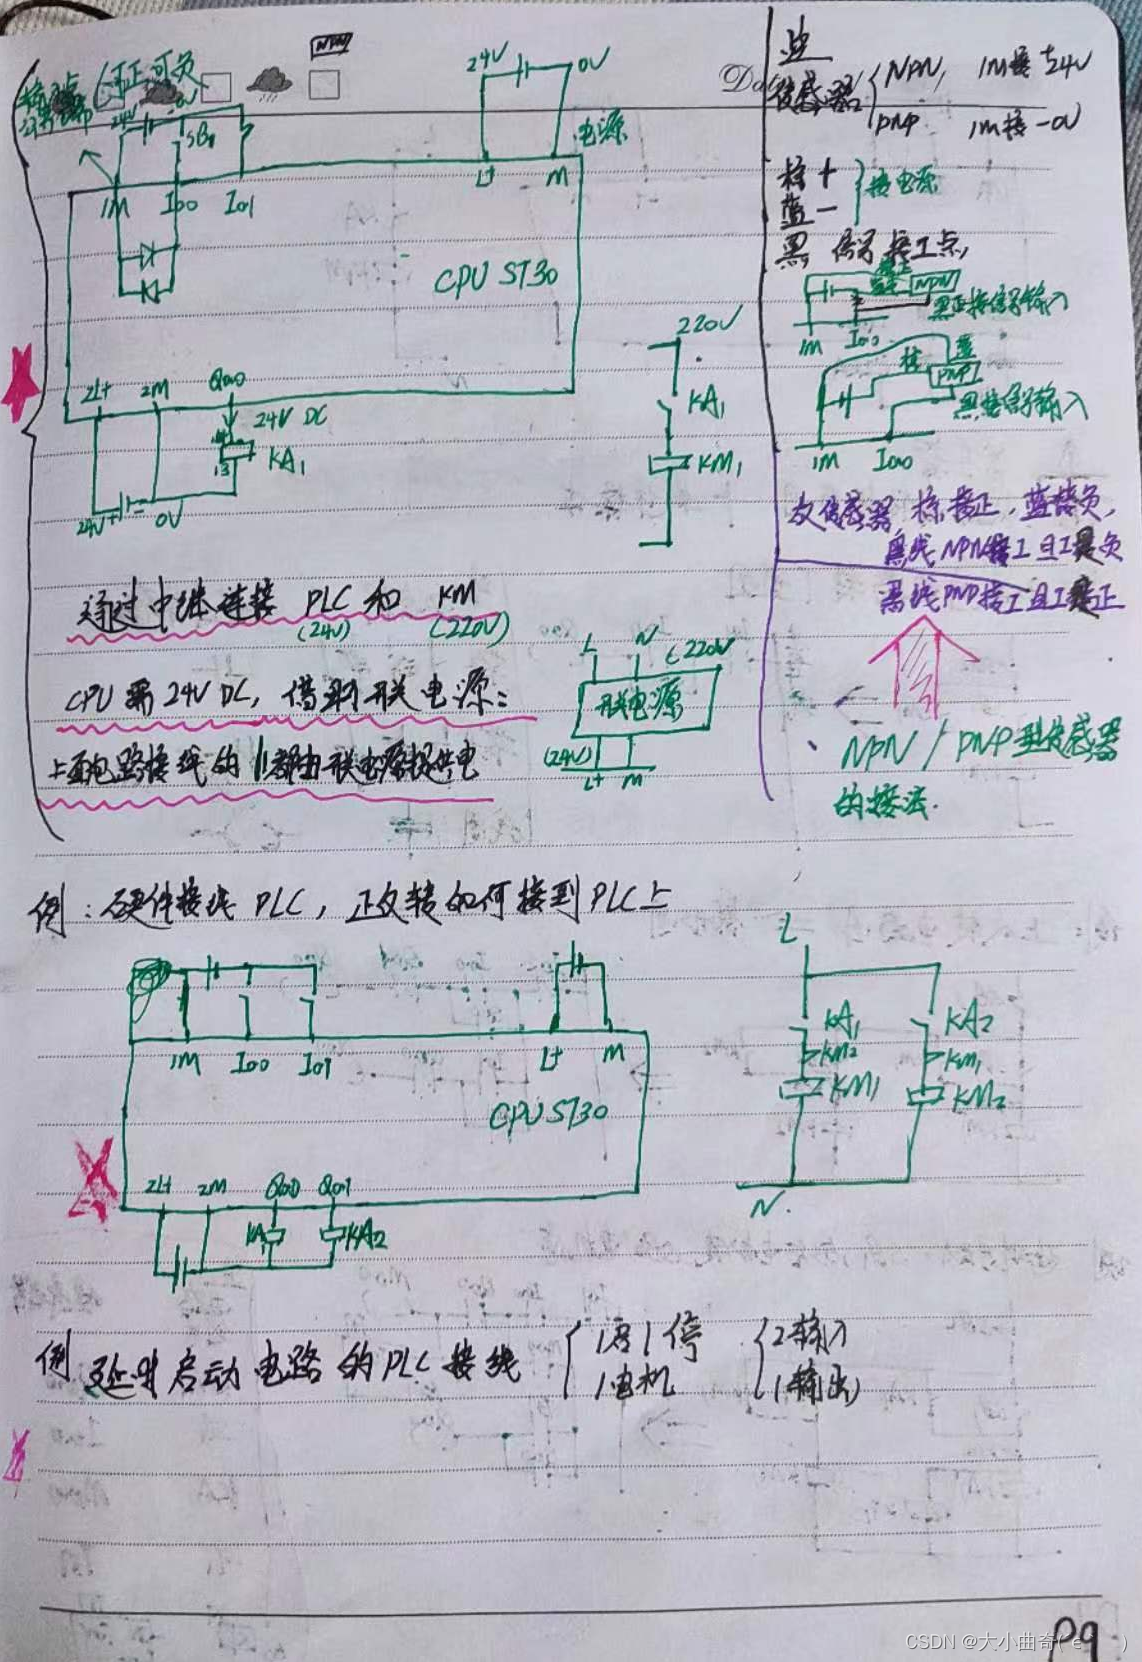 NPN
可正可负
24V
0V
SB1
1M I0.0 I0.1
24V 0V
电源
L+ M
CPU ST30
2L+ 2M Q0.0
24V DC
14
13
KA1
24V+ 0V
220V
KA1
KM1
通过中继连接 PLC 和 KM
(24V) (220V)
CPU需24V DC, 借助开关电源:
上面电路接线的 都由开关电源提供电
L N (220V
开关电源
(24V)
L+ M
传感器 { NPN, 1M接+24V
PNP 1M接-0V
棕 +
蓝 -
} 接电源
黑, 信号接I点,
NPN
1M I0.0
棕 蓝
PNP
黑接信号输入
1M I0.0
传感器, 棕接正, 蓝接负,
黑线NPN接I且I是负
黑线PNP接I且I是正
NPN / PNP型传感器
的接法.
例: 硬件接线PLC, 正反转如何接到PLC上
1M I0.0 I0.1 L+ M
CPU ST30
2L+ 2M Q0.0 Q0.1
KA1 KA2
L
KA1 KA2
KM2 KM1
KM1 KM2
N
例 延时启动电路的PLC接线 { 1启1停 { 2输入
1电机 1输出
P9
CSDN @大小曲奇(